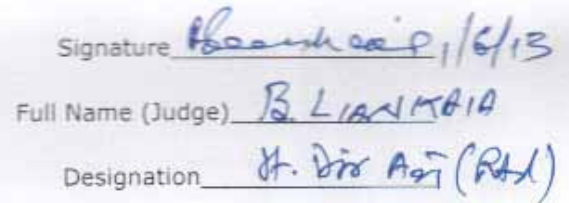 Signature 1/6/13
Full Name (Judge) B. LIANKAIA
Designation Jt. Dir Agri (R&d)